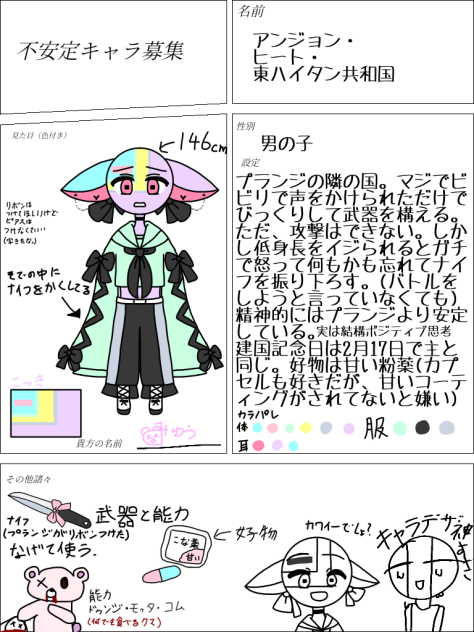 不安定キャラ募集
名前
アンジョン・
ヒート・
東ハイタン共和国
見た目(色付き)
146cm
リボンは
つけてほしいけど
ピアスは
つけなくていい
そでの中に
ナイフをかくしてる
こっき
貴方の名前
みゆう
性別
男の子
設定
プランジの隣の国。マジでビ
ビリで声をかけられただけで
びっくりして武器を構える。
ただ、攻撃はできない。しか
し低身長をイジられるとガチ
で怒って何もかも忘れてナイ
フを振り下ろす。(バトルを
しようと言っていなくても)
精神的にはプランジより安定
している。実は結構ポジティブ思考
建国記念日は2月17日で主と
同じ。好物は甘い粉薬(カプ
セルも好きだが、甘いコーテ
ィングがされてないと嫌い)
カラパレ
体
服
耳
その他諸々
武器と能力
ナイフ
(プランジがリボンつけた)
なげて使う.
こな薬
甘い
好物
能力
ドゥンジ・モッタ・コム
(何でも食べるクマ)
カワイーでしょ?
キャラデザ神
すぎ